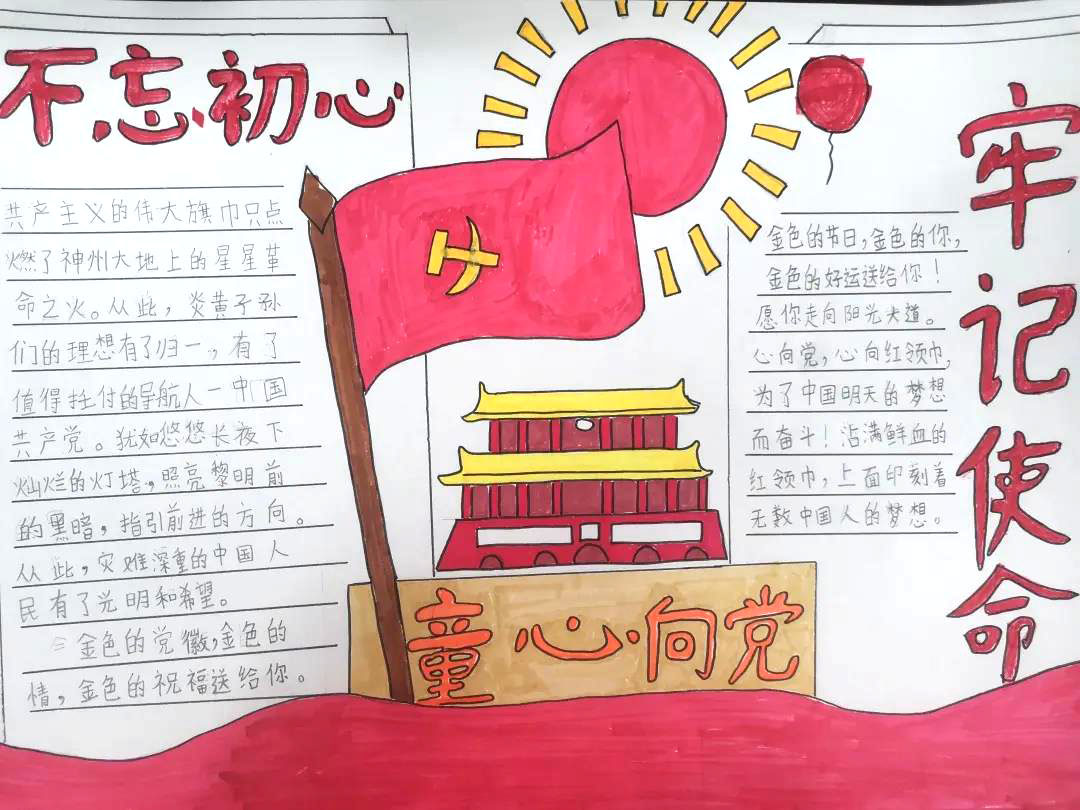 不忘初心
共产主义的伟大旗巾只点
燃了神州大地上的星星革
命之火。从此，炎黄子孙
们的理想有了归一，有了
值得托付的导航人一中国
共产党。犹如悠悠长夜下
灿烂的灯塔，照亮黎明前
的黑暗，指引前进的方向。
从此，灾难深重的中国人
民有了光明和希望。
金色的党徽，金色的
情，金色的祝福送给你。
童心向党
金色的节日，金色的你，
金色的好运送给你！
愿你走向阳光大道。
心向党，心向红领巾，
为了中国明天的梦想
而奋斗！沾满鲜血的
红领巾，上面印刻着
无数中国人的梦想。
牢记使命